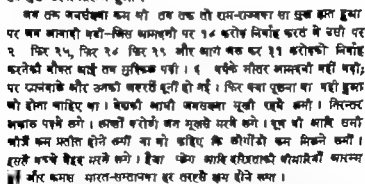 जब तक जनसंख्या कम थी तब तक तो राम-राज्यका सा सुख होता हुआ
पर जब आबादी बढी–जिस आमदनी पर १४ करोड़ निर्वाह करते थे उसी पर
२ फिर २५, फिर २८ फिर २९ और आगे बल कर ३१ करोड़को निर्वाह
करनेकी नौबत आई तब मुश्किल पड़ी । ६ वर्षके भीतर आमदनी वही रही;
पर खानेवाले और उनकी जरूरतें दूनी हो गईं । फिर क्या पूछना था वही हुआ
जो होना चाहिए था । देशकी आधी जनसंख्या भूखी रहने लगी । निरन्तर
अकाल पड़ने लगे । लाखों करोड़ों जन भूखसे मरने लगे । दूध घी आदि सभी
चीजें कम प्रतीत होने लगीं या यों कहिए कि लोगोंको कम मिलने लगीं ।
इससे बच्चे बेहद मरने लगे । हैजा प्लेग आदि दरिद्रताकी बीमारियाँ आरम्भ
हुईं और क्रमशः भारत-सन्तानका हर तरहसे क्षय होने लगा ।